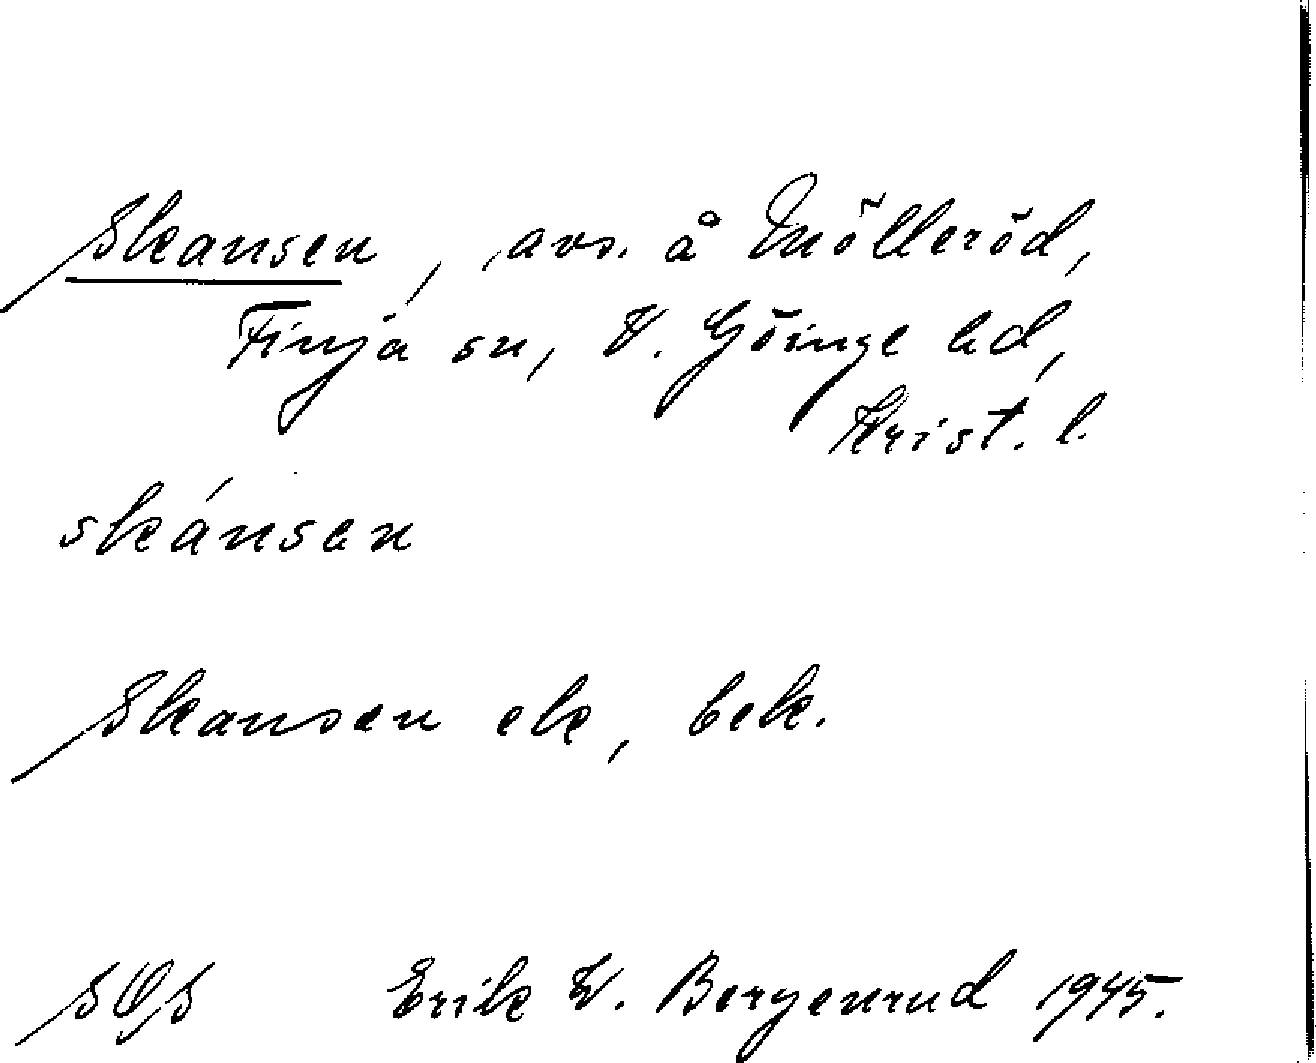 Skansen, avs. å Mölleröd,
Finja sn, V. Göinge hd,
Krist. l.
skánsen
Skansen ek, bek.
SOS Erik W. Bergenrud 1945.